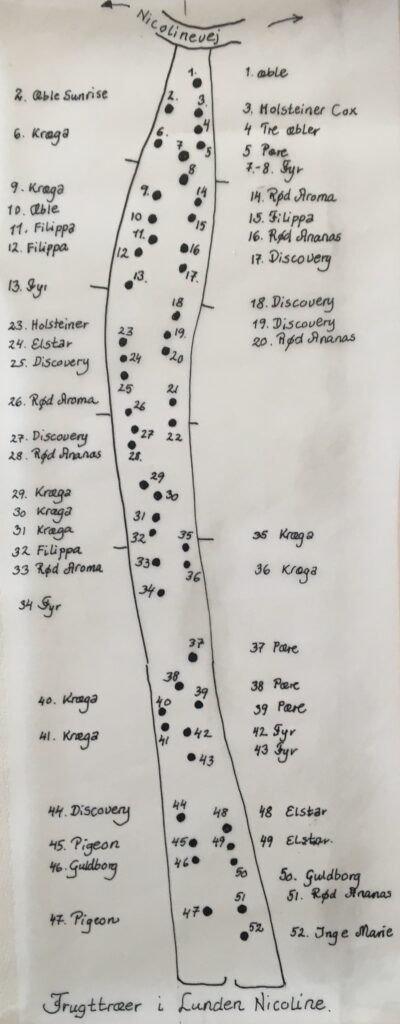 Nicolinevej
1. æble
2. Æble Sunrise
3. Holsteiner Cox
4 Tre æbler
5 Pære
6. Kræga
7.-8. Fyr
9. Kræga
10. Æble
11. Filippa
12. Filippa
13. Fyr
14. Rød Aroma
15. Filippa
16. Rød Ananas
17. Discovery
18. Discovery
19. Discovery
20. Rød Ananas
23. Holsteiner
24. Elstar
25. Discovery
26. Rød Aroma
27. Discovery
28. Rød Ananas
29. Kræga
30 Kræga
31 Kræga
32 Filippa
33 Rød Aroma
34 Fyr
35 Kræga
36 Kræga
37 Pære
38 Pære
39 Pære
40. Kræga
41. Kræga
42 Fyr
43 Fyr
44. Discovery
45. Pigeon
46. Guldborg
47. Pigeon
48 Elstar
49 Elstar.
50. Guldborg
51. Rød Ananas
52. Inge Marie
1.
2.
3.
4
5
6.
7
8
9.
10
11.
12
13.
14
15
16
17.
18
19.
20
21
22
23
24
25
26
27
28.
29
30
31
32
33
34
35
36
37
38
39
40
41
42
43
44
45
46
47
48
49
50
51
52
Frugttræer i Lunden Nicoline.